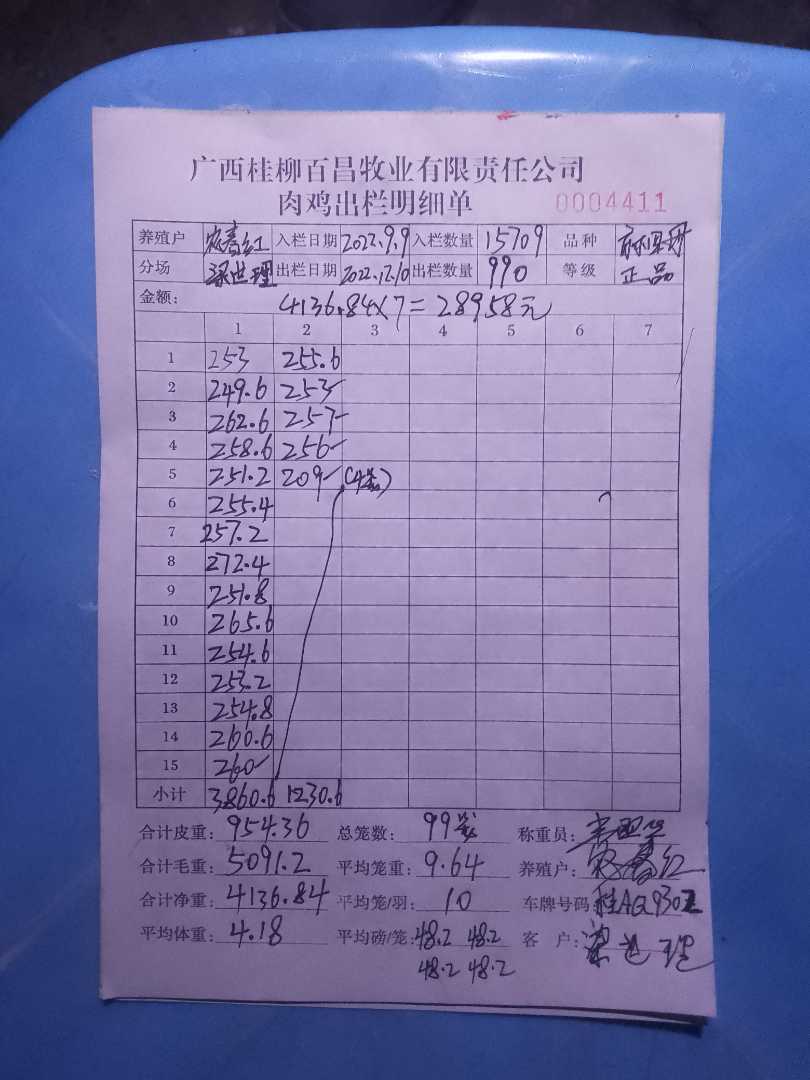 广西桂柳百昌牧业有限责任公司
肉鸡出栏明细单 0004411
养殖户 农春红 入栏日期 2022.9.9 入栏数量 15709 品种
分场 梁世理 出栏日期 2022.12.10 出栏数量 990 等级 正品
金额: 4136.84×7=28958元
1 2 3 4 5 6 7
1 253 255.6
2 249.6 253
3 262.6 257
4 258.6 256
5 251.2 209 (4笼)
6 255.4
7 257.2
8 272.4
9 251.8
10 265.6
11 254.6
12 253.2
13 254.8
14 260.6
15 260
小计 3860.6 1230.6
合计皮重: 954.36 总笼数: 99笼 称重员:
合计毛重: 5091.2 平均笼重: 9.64 养殖户: 农春红
合计净重: 4136.84 平均笼/羽: 10 车牌号码: 桂AQ930Z
平均体重: 4.18 平均磅/笼: 48.2 48.2 客户: 梁世理
48.2 48.2